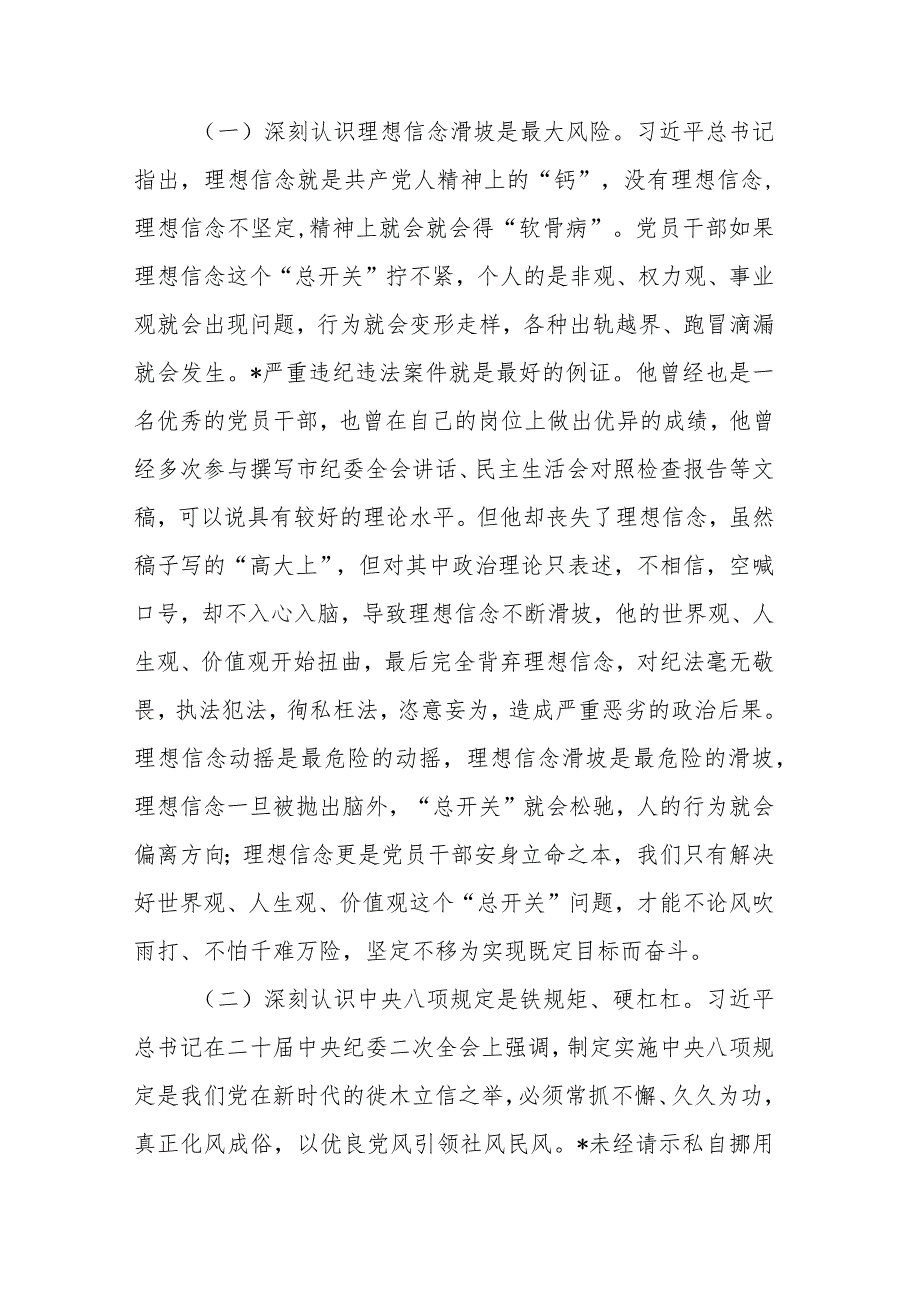 （一）深刻认识理想信念滑坡是最大风险。习近平总书记
指出，理想信念就是共产党人精神上的“钙”，没有理想信念,
理想信念不坚定,精神上就会就会得“软骨病”。党员干部如果
理想信念这个“总开关”拧不紧，个人的是非观、权力观、事业
观就会出现问题，行为就会变形走样，各种出轨越界、跑冒滴漏
就会发生。*严重违纪违法案件就是最好的例证。他曾经也是一
名优秀的党员干部，也曾在自己的岗位上做出优异的成绩，他曾
经多次参与撰写市纪委全会讲话、民主生活会对照检查报告等文
稿，可以说具有较好的理论水平。但他却丧失了理想信念，虽然
稿子写的“高大上”，但对其中政治理论只表述，不相信，空喊
口号，却不入心入脑，导致理想信念不断滑坡，他的世界观、人
生观、价值观开始扭曲，最后完全背弃理想信念，对纪法毫无敬
畏，执法犯法，徇私枉法，恣意妄为，造成严重恶劣的政治后果。
理想信念动摇是最危险的动摇，理想信念滑坡是最危险的滑坡，
理想信念一旦被抛出脑外，“总开关”就会松驰，人的行为就会
偏离方向；理想信念更是党员干部安身立命之本，我们只有解决
好世界观、人生观、价值观这个“总开关”问题，才能不论风吹
雨打、不怕千难万险，坚定不移为实现既定目标而奋斗。
（二）深刻认识中央八项规定是铁规矩、硬杠杠。习近平
总书记在二十届中央纪委二次全会上强调，制定实施中央八项规
定是我们党在新时代的徙木立信之举，必须常抓不懈、久久为功，
真正化风成俗，以优良党风引领社风民风。*未经请示私自挪用